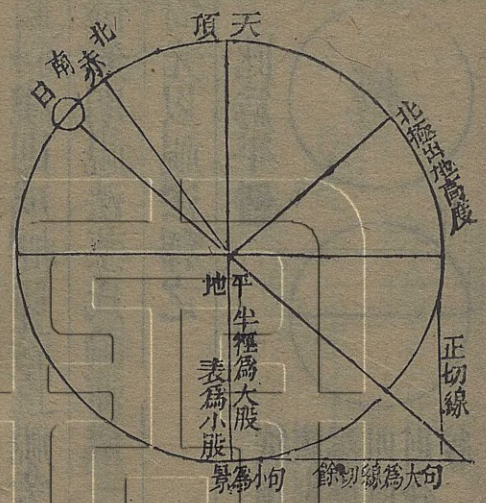 天頂
北赤南日
北極出地高度
地平
半徑爲大股
表爲小股
正切線
景爲小句
餘切線爲大句